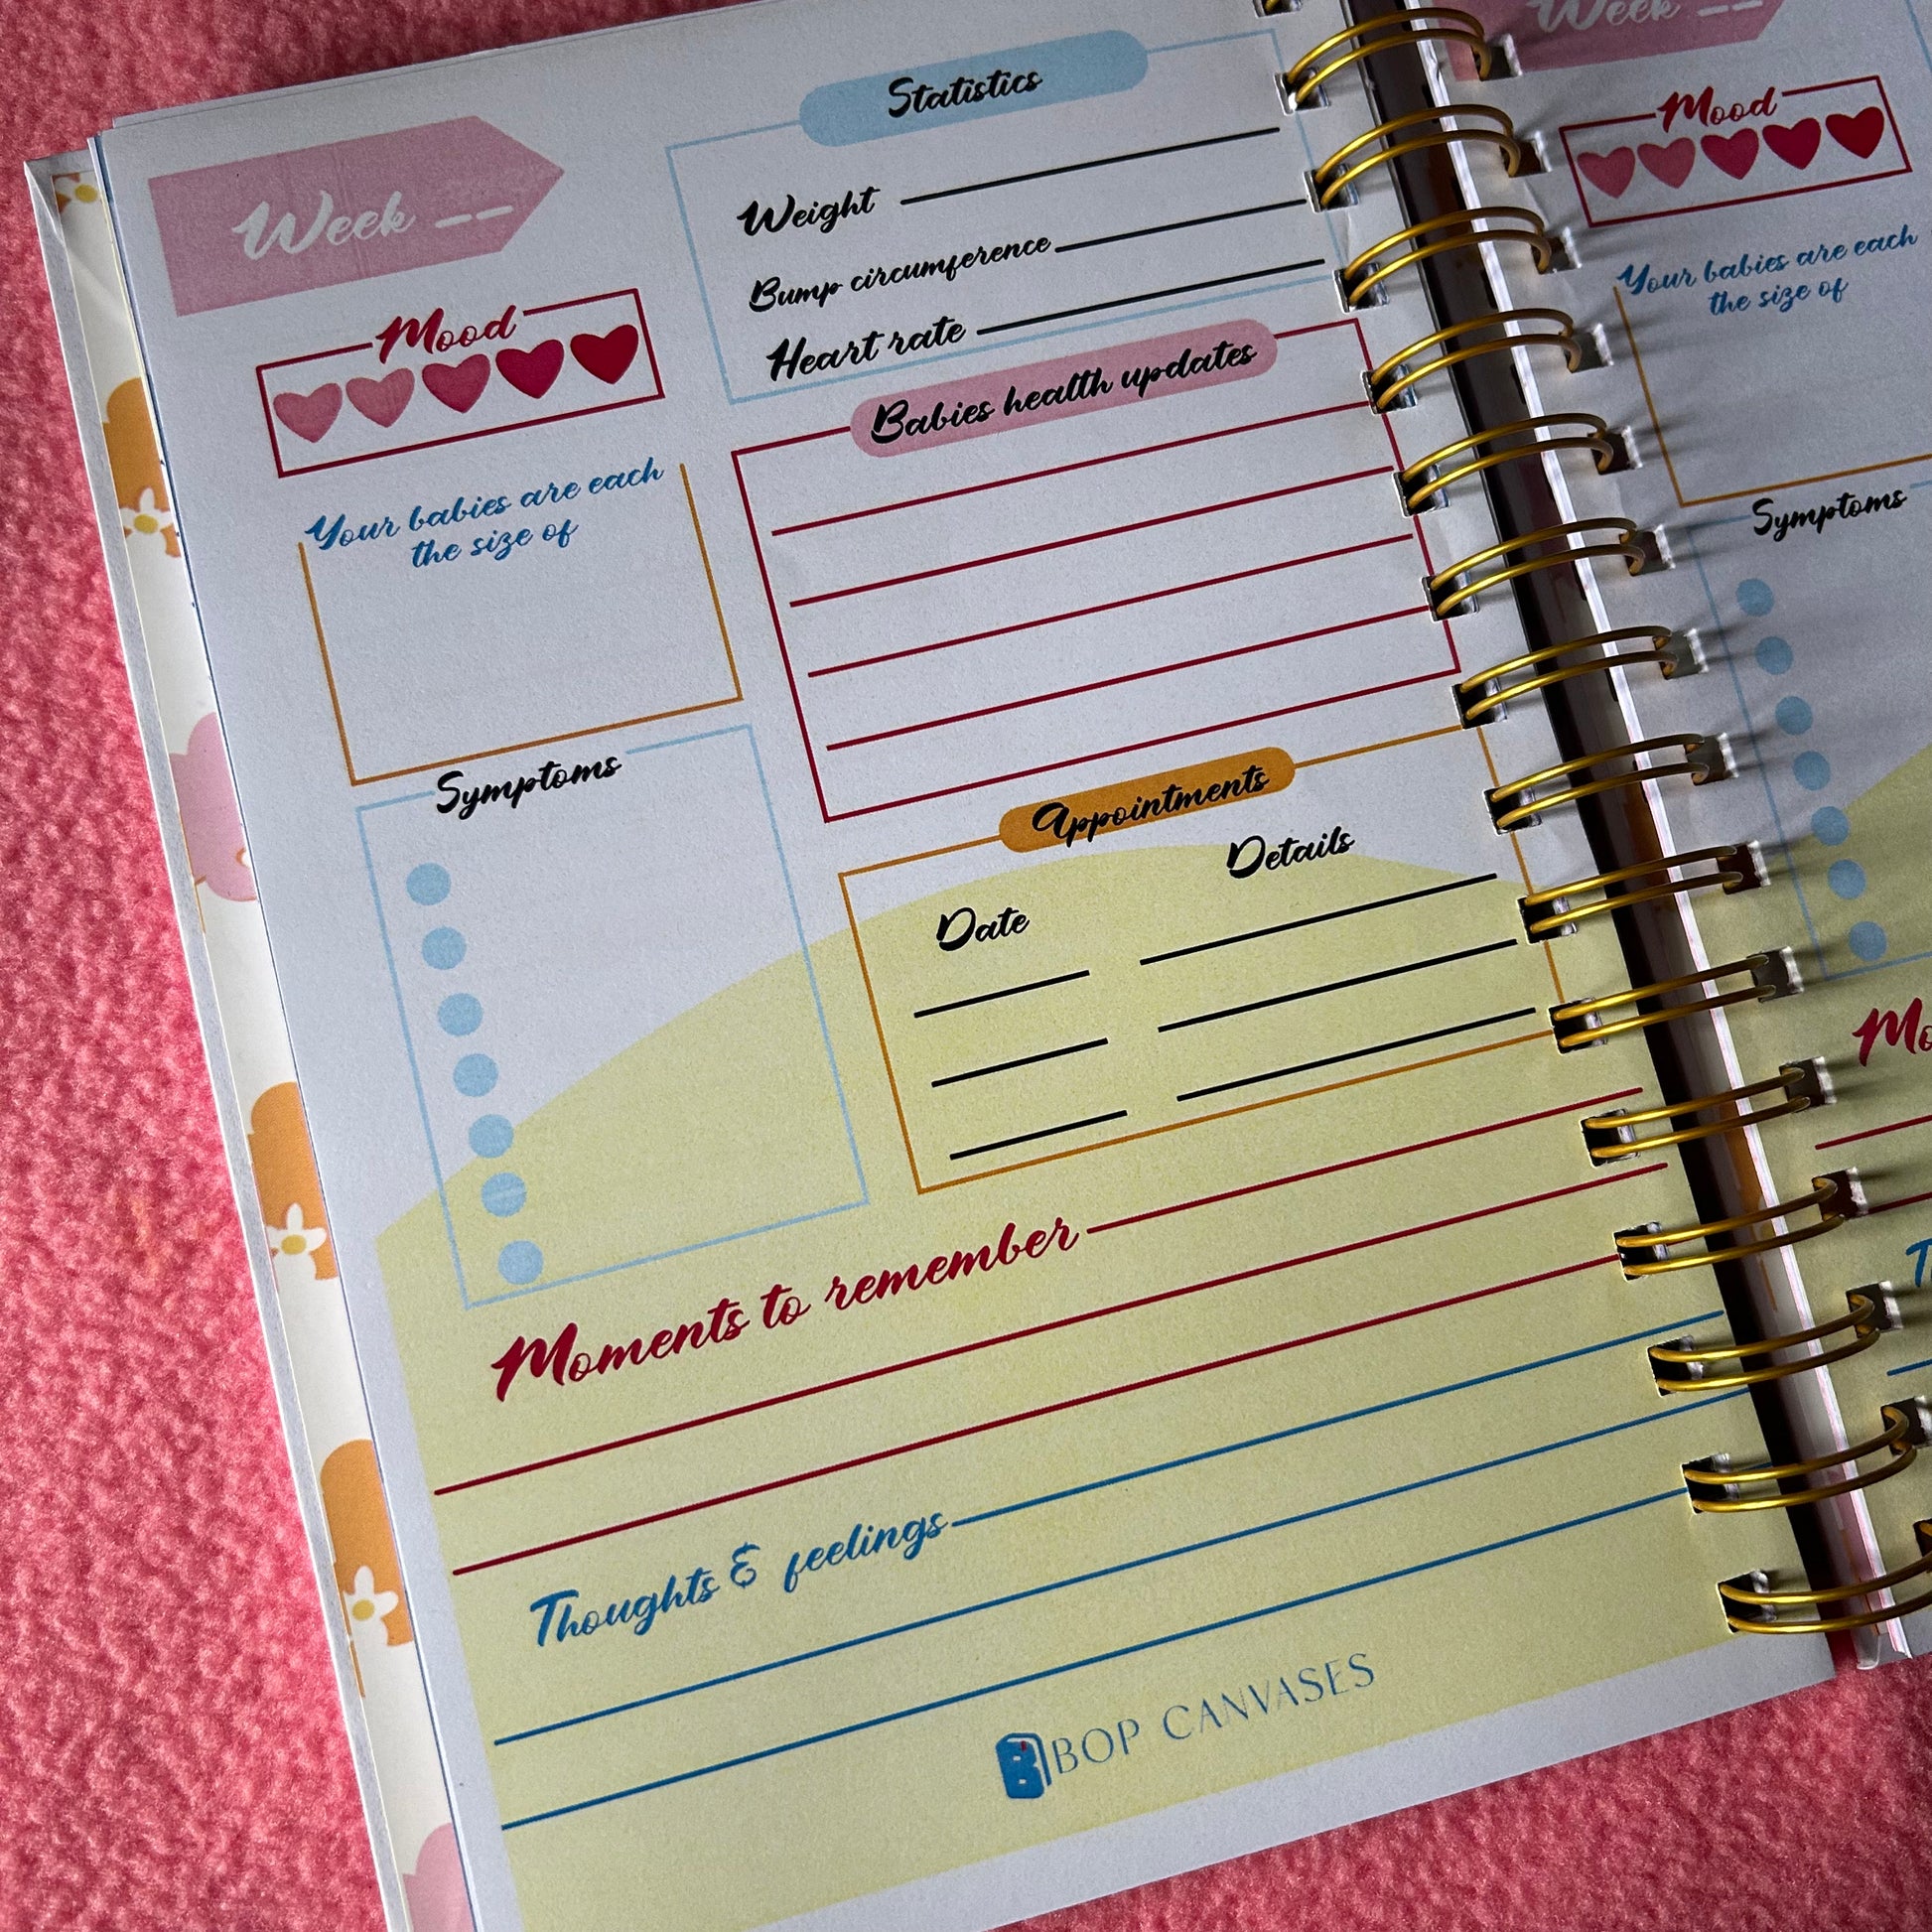 Week __
Mood
Your babies are each
the size of
Symptoms
Statistics
Weight
Bump circumference
Heart rate
Babies health updates
Appointments
Date
Details
Moments to remember
Thoughts & feelings
BOP CANVASES
Week __
Mood
Your babies are each
the size of
Symptoms
Mo
T